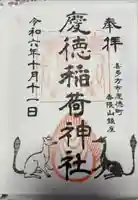 奉拝
喜多方市慶徳町
慶徳稲荷神社
令和六年十月十一日